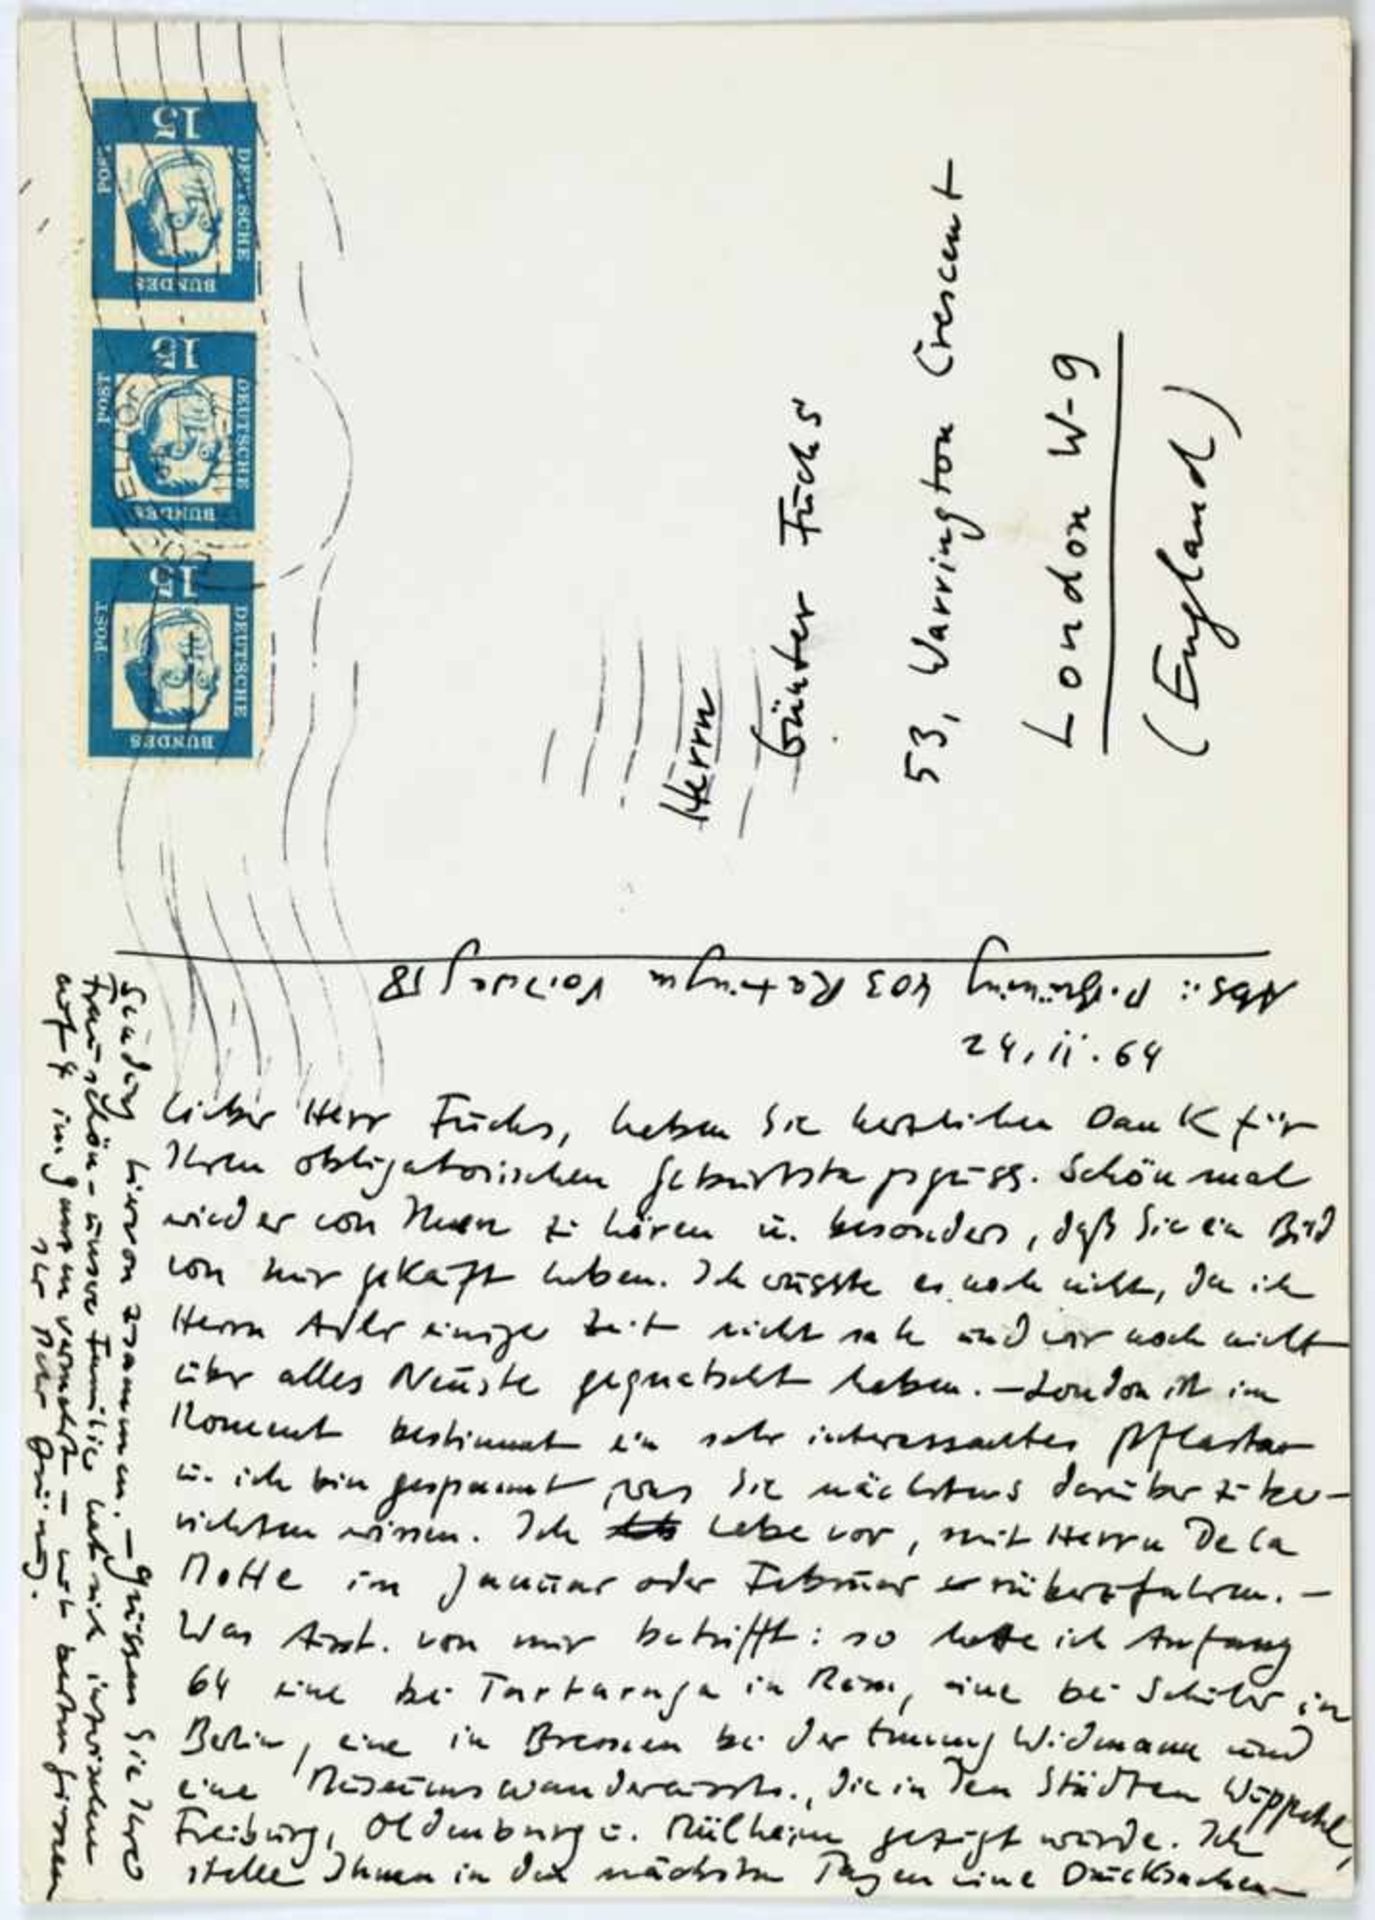 15
DEUTSCHE
BUNDES
POST
15
DEUTSCHE
BUNDES
POST
15
DEUTSCHE
BUNDES
POST
Herrn
Günter Fuchs
53, Warrington Crescent
London W-9
(England)
Abs.: P. Brüning 403 Ratingen Voisweg 18
24.11.64
Lieber Herr Fuchs, haben Sie herzlichen Dank für
Ihren obligatorischen Geburtstagsgruss. Schön mal
wieder von Ihnen zu hören u. besonders, daß Sie ein Bild
von mir gekauft haben. Ich wusste es noch nicht, da ich
Herrn Adlr einige Zeit nicht sah und wir noch nicht
über alles Neuste gequatscht haben. — London ist im
Moment bestimmt ein sehr interessantes Pflaster
u. ich bin gespannt, was Sie nächstens darüber zu be-
richten wissen. Ich habe vor, mit Herrn De la
Motte im Januar oder Februar rüberzufahren. —
Was Ausst. von mir betrifft: so hatte ich Anfang
64 eine bei Tartaruga in Rom, eine bei Schüler in
Berlin, eine in Bremen bei der Emmy Widmann und
eine Museumswanderausst., die in den Städten Wuppertal,
Freiburg, Oldenburg u. Mülheim gezeigt wurde. Ich
stelle Ihnen in den nächsten Tagen eine Drucksachen-
Sendung hiervon zusammen. — Grüssen Sie Ihre
Frau schön — unsere Familie hat sich inzwischen
auf 4 im ganzen vermehrt — mit besten Grüssen
Ihr Peter Brüning.